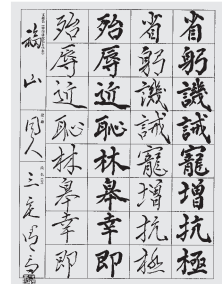 省躬譏誡寵增抗極
省躬譏誡寵增抗極
殆辱近恥林皋幸即
殆辱近恥林皋幸即
福山